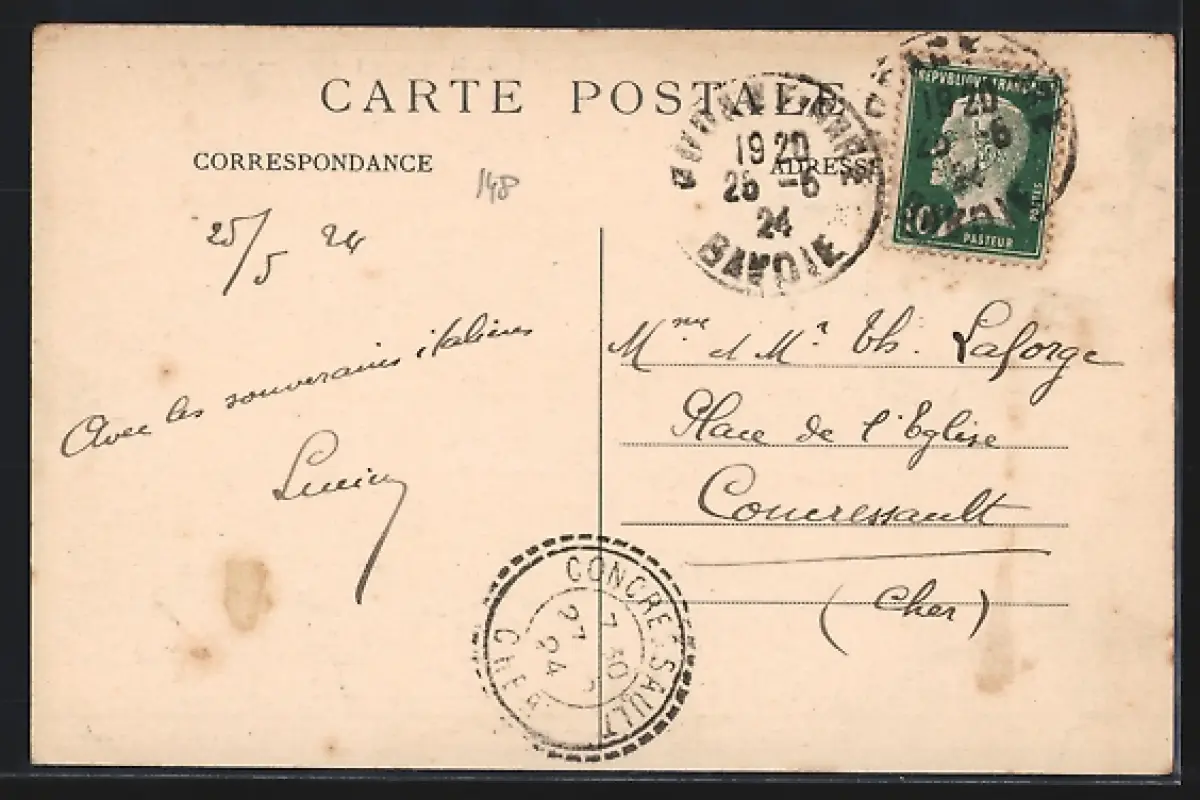 CARTE POSTALE
CORRESPONDANCE
ADRESSE
148
25/5 24
Avec les souverains italiens
Lucien
19 20
25 -6
24
SAVOIE
REPUBLIQUE FRANCAISE
19 20
25 -6
24
SAVOIE
POSTES
10c
PASTEUR
Mme et Mr Th. Laforge
Place de l'Eglise
Concressault
(Cher)
CONCRESSAULT
7 30
27 5
24
CHER